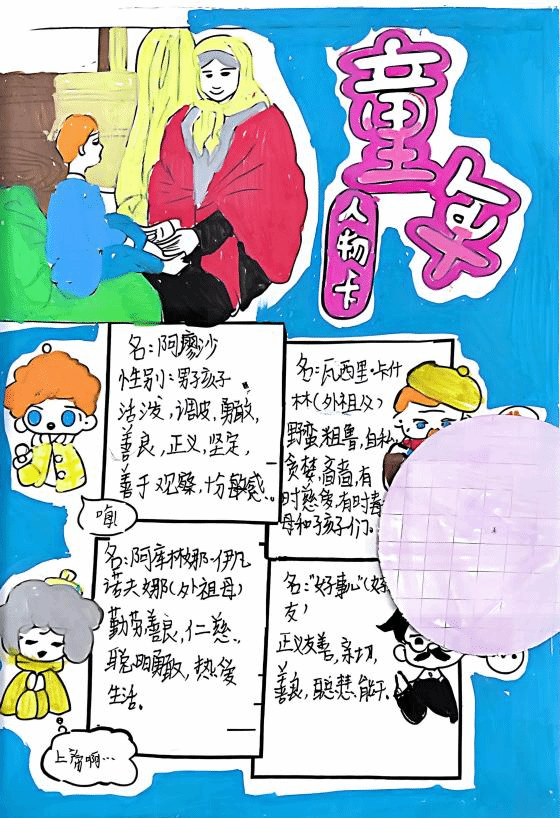 童年
人物卡
名:阿廖沙
性别:男子孩子
活泼,调皮,勇敢,
善良,正义,坚定,
善于观察,十分敏感。
嗨!
名:瓦西里·卡什
林(外祖父)
野蛮,粗鲁,自私
贪婪,吝啬,有
时慈爱,有时毒
母和子孩子们。
名:阿库林娜·伊凡
诺夫娜(外祖母)
勤劳善良,仁慈。,
聪明勇敢,热爱
生活。
上帝啊…
名:“好事心”(好
友)
正义友善,亲切,
善良,聪慧,能干。